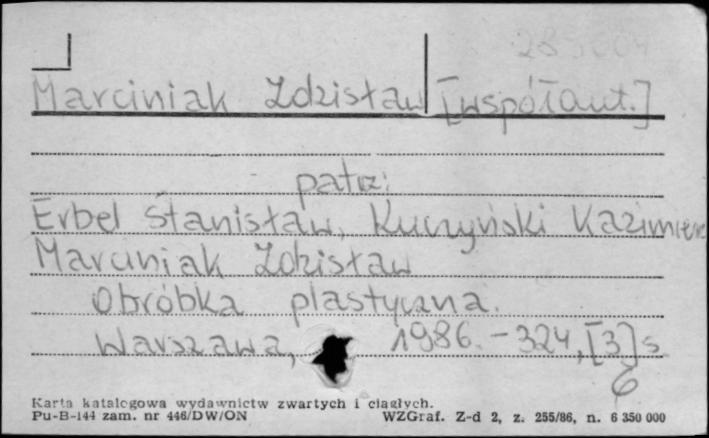 289004
Marciniak Zdzisław [współaut.]
patrz:
Erbel Stanisław, Kuczyński Kazimierz
Marciniak Zdzisław
Obróbka plastyczna.
Warszawa, 1986. - 324, [3] s
6
Karta katalogowa wydawnictw zwartych i ciągłych.
Pu-B-144 zam. nr 446/DW/ON WZGraf. Z-d 2, z. 255/86, n. 6 350 000